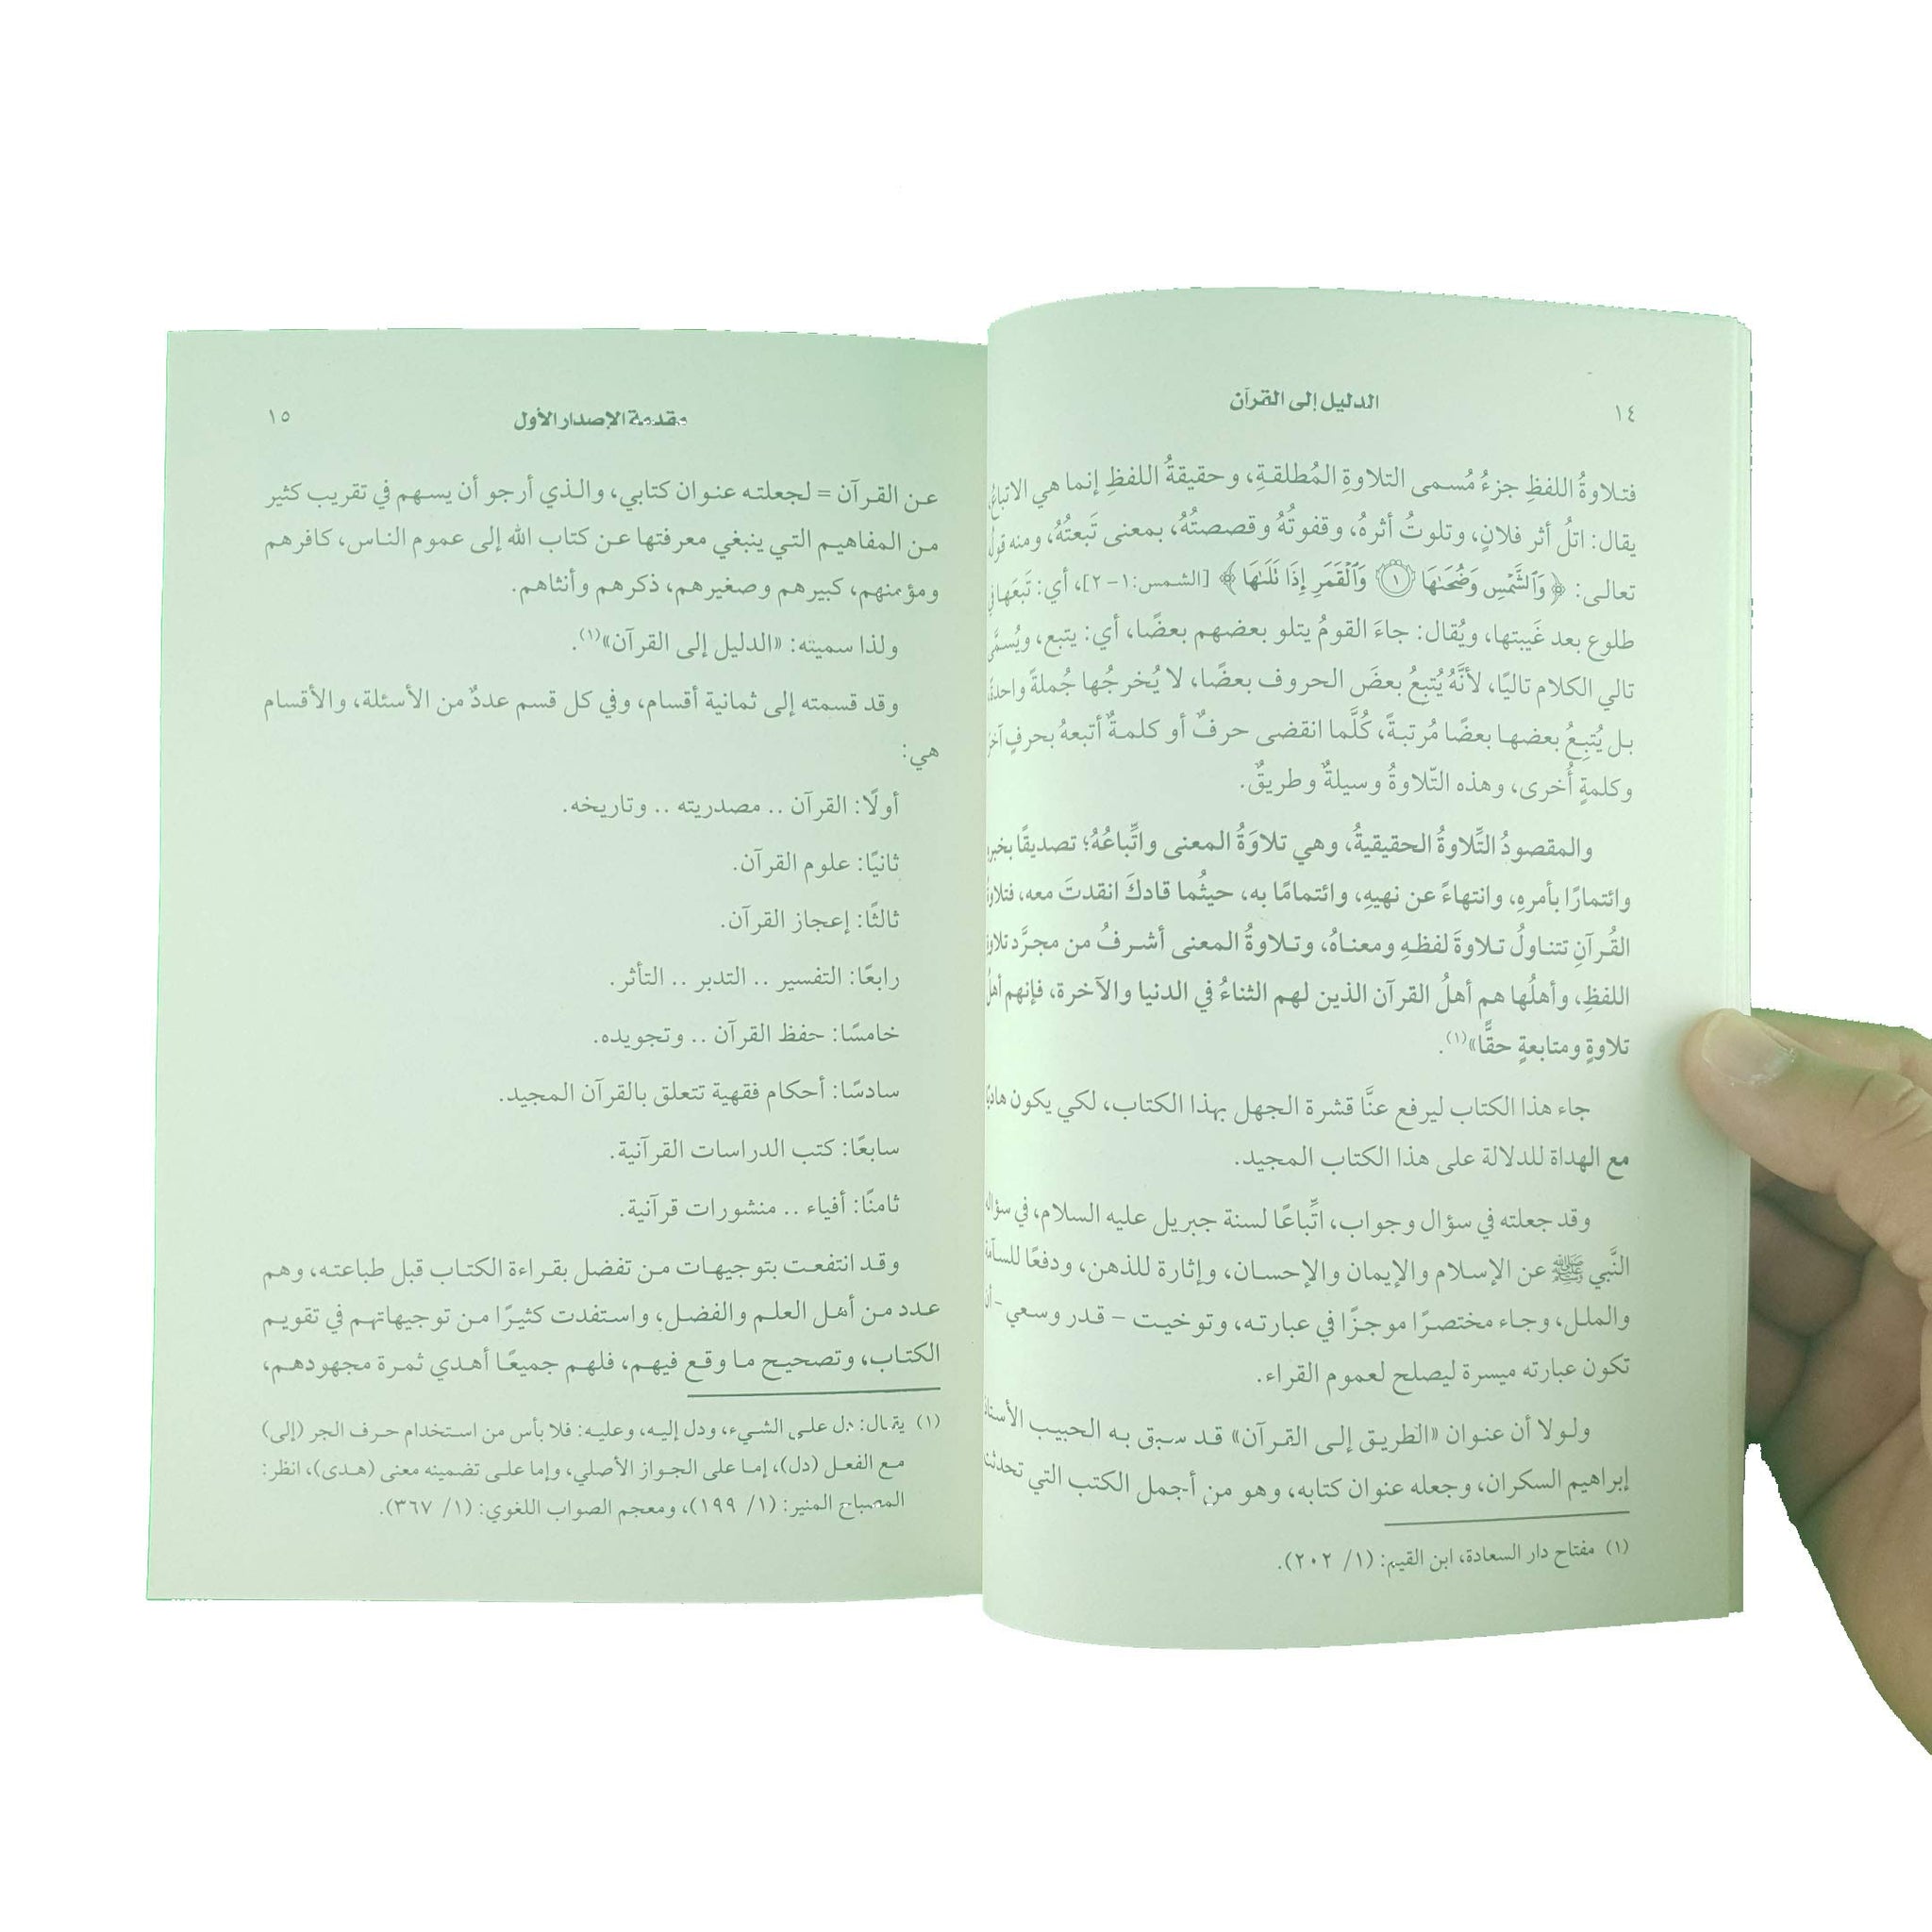 ١٤
الدليل إلى القرآن
فتلاوةُ اللفظِ جزءُ مُسمى التلاوةِ المُطلقةِ، وحقيقةُ اللفظِ إنما هي الاتباعُ،
يقال: اتلُ أثر فلانٍ، وتلوتُ أثرهُ، وقفوتُهُ وقصصتُهُ، بمعنى تَبعتُهُ، ومنه قولُ
تعالى: ﴿وَٱلشَّمْسِ وَضُحَىٰهَا ١ وَٱلْقَمَرِ إِذَا تَلَىٰهَا﴾ [الشمس:١-٢]، أي: تَبعَها في
طلوع بعد غَيبتها، ويُقال: جاءَ القومُ يتلو بعضهم بعضًا، أي: يتبع، ويُسمَّى
تالي الكلام تاليًا، لأنَّهُ يُتبعُ بعضَ الحروف بعضًا، لا يُخرجُها جُملةً واحدةً،
بل يُتبِعُ بعضها بعضًا مُرتبةً، كُلَّما انقضى حرفٌ أو كلمةٌ أتبعهُ بحرفٍ آخرَ
وكلمةٍ أُخرى، وهذه التّلاوةُ وسيلةٌ وطريقٌ.
والمقصودُ التِّلاوةُ الحقيقيةُ، وهي تلاوَةُ المعنى واتِّباعُهُ؛ تصديقًا بخبرِ
وائتمارًا بأمرهِ، وانتهاءً عن نهيهِ، وائتمامًا به، حيثُما قادكَ انقدتَ معه، فتلاوةُ
القُرآنِ تتناولُ تلاوةَ لفظهِ ومعناهُ، وتلاوةُ المعنى أشرفُ من مجرَّد تلاوة
اللفظِ، وأهلُها هم أهلُ القرآن الذين لهم الثناءُ في الدنيا والآخرة، فإنهم أهلُ
تلاوةٍ ومتابعةٍ حقًّا»(١).
جاء هذا الكتاب ليرفع عنَّا قشرة الجهل بهذا الكتاب، لكي يكون هاديًا
مع الهداة للدلالة على هذا الكتاب المجيد.
وقد جعلته في سؤال وجواب، اتِّباعًا لسنة جبريل عليه السلام، في سؤال
النَّبي ﷺ عن الإسلام والإيمان والإحسان، وإثارة للذهن، ودفعًا للسآمة
والملل، وجاء مختصرًا موجزًا في عبارته، وتوخيت - قدر وسعي - أن
تكون عبارته ميسرة ليصلح لعموم القراء.
ولولا أن عنوان «الطريق إلى القرآن» قد سبق به الحبيب الأستاذ
إبراهيم السكران، وجعله عنوان كتابه، وهو من أجمل الكتب التي تحدثت
(١) مفتاح دار السعادة، ابن القيم: (١/ ٢٠٢).
مقدمة الإصدار الأول
١٥
عن القرآن = لجعلته عنوان كتابي، والذي أرجو أن يسهم في تقريب كثير
من المفاهيم التي ينبغي معرفتها عن كتاب الله إلى عموم الناس، كافرهم
ومؤمنهم، كبيرهم وصغيرهم، ذكرهم وأنثاهم.
ولذا سميته: «الدليل إلى القرآن»(١).
وقد قسمته إلى ثمانية أقسام، وفي كل قسم عددٌ من الأسئلة، والأقسام
هي:
أولًا: القرآن .. مصدريته .. وتاريخه.
ثانيًا: علوم القرآن.
ثالثًا: إعجاز القرآن.
رابعًا: التفسير .. التدبر .. التأثر.
خامسًا: حفظ القرآن .. وتجويده.
سادسًا: أحكام فقهية تتعلق بالقرآن المجيد.
سابعًا: كتب الدراسات القرآنية.
ثامنًا: أفياء .. منشورات قرآنية.
وقد انتفعت بتوجيهات من تفضل بقراءة الكتاب قبل طباعته، وهم
عدد من أهل العلم والفضل، واستفدت كثيرًا من توجيهاتهم في تقويم
الكتاب، وتصحيح ما وقع فيهم، فلهم جميعًا أهدي ثمرة مجهودهم،
(١) يقال: دل على الشيء، ودل إليه، وعليه: فلا بأس من استخدام حرف الجر (إلى)
مع الفعل (دل)، إما على الجواز الأصلي، وإما على تضمينه معنى (هدى)، انظر:
المصباح المنير: (١/ ١٩٩)، ومعجم الصواب اللغوي: (١/ ٣٦٧).